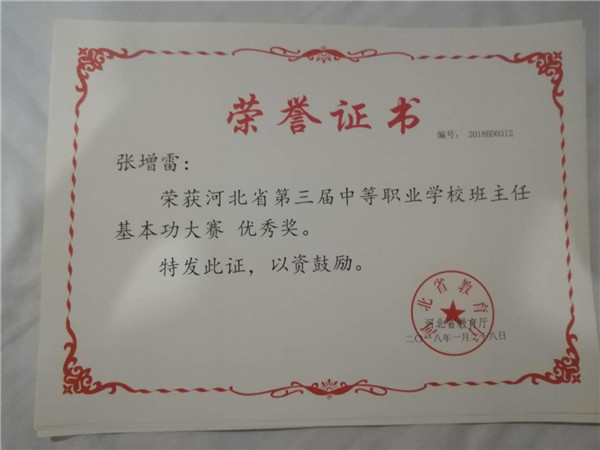 荣誉证书
编号: 2018HD0312
张增雷:
荣获河北省第三届中等职业学校班主任
基本功大赛 优秀奖。
特发此证,以资鼓励。
河北省教育厅
河北省教育厅